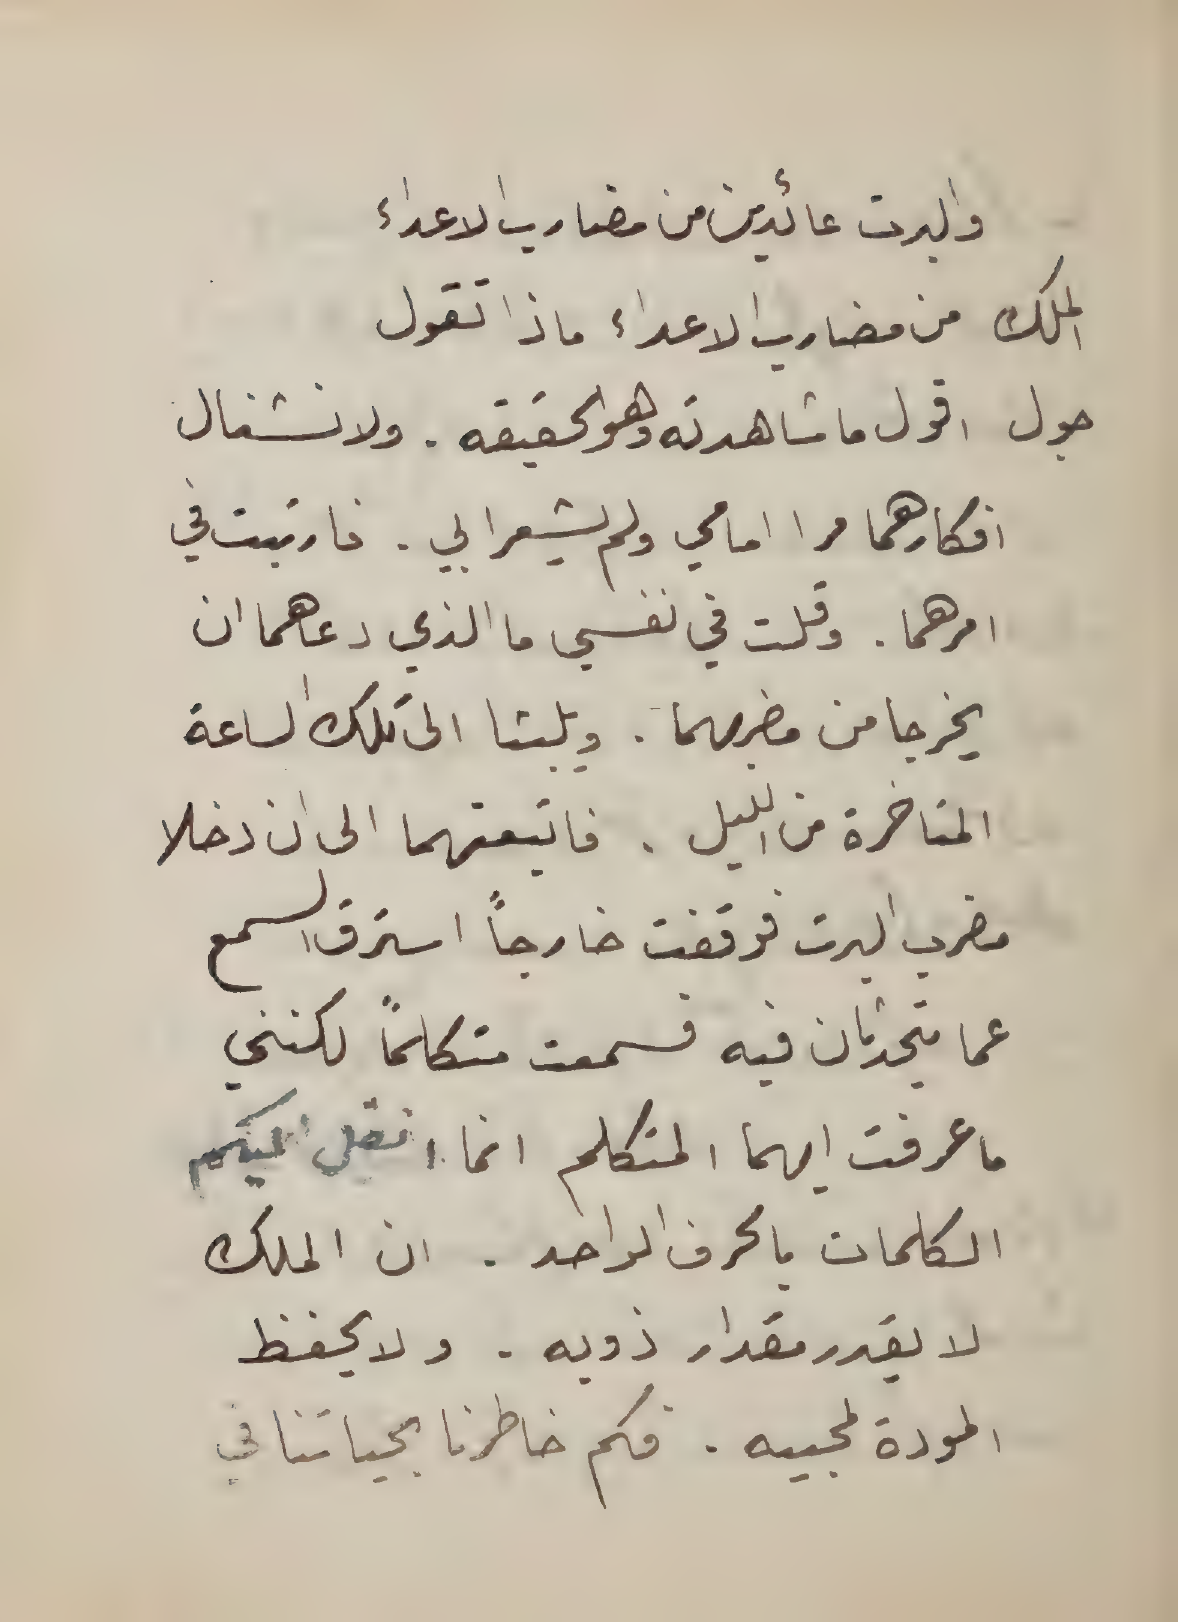 والبرت عائدين من مضارب الاعداء
الملك من مضارب الاعداء ماذا تقول
جول اقول ما شاهدته وهو الحقيقه . ولانشغال
افكارهما مرا امامي ولم يشعرا بي . فارتبت في
امرهما . وقلت في نفسي ما الذي دعاهما ان
يخرجا من مضربهما . ويلبثا الى تلك الساعة
المتاخرة من الليل . فاتبعتهما الى ان دخلا
مضرب البرت فوقفت خارجاً استرق السمع
عما يتحدثان فيه فسمعت متكلماً لكنني
ما عرفت ايهما المتكلم انما انقل اليكم
الكلمات بالحرف الواحد . ان الملك
لا يقدر مقدار ذويه . ولا يحفظ
المودة لمحبيه . فكم خاطرنا بحياتنا في